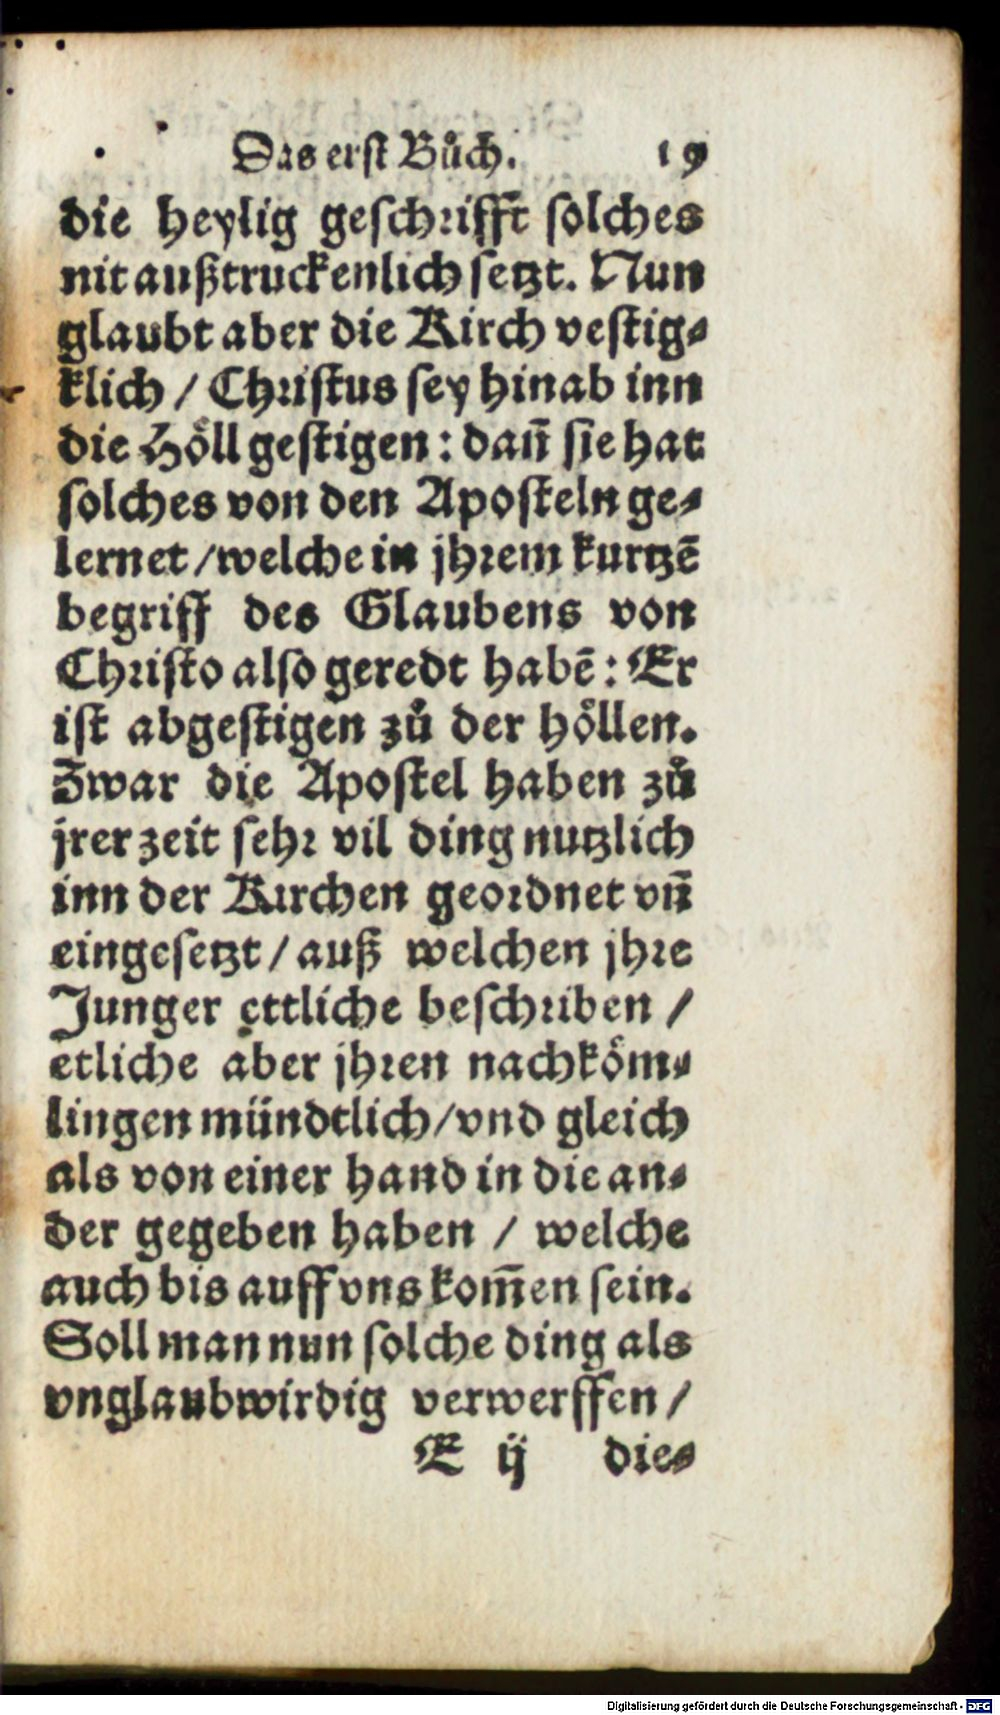 Das erst Bůch. 19
die heylig geschrifft solches
nit außtruckenlich setzt. Nun
glaubt aber die Kirch vestig-
klich / Christus sey hinab inn
die Höll gestigen : dañ sie hat
solches von den Aposteln ge-
lernet / welche in jhrem kurtzē
begriff des Glaubens von
Christo also geredt habē : Er
ist abgestigen zů der höllen.
Zwar die Apostel haben zů
jrer zeit sehr vil ding nutzlich
inn der Kirchen geordnet vñ
eingesetzt / auß welchen jhre
Junger ettliche beschriben /
etliche aber jhren nachköm-
lingen mündtlich / vnd gleich
als von einer hand in die an-
der gegeben haben / welche
auch bis auff vns kom̄en sein.
Soll man nun solche ding als
vnglaubwirdig verwerffen /
E ij die-
Digitalisierung gefördert durch die Deutsche Forschungsgemeinschaft - DFG